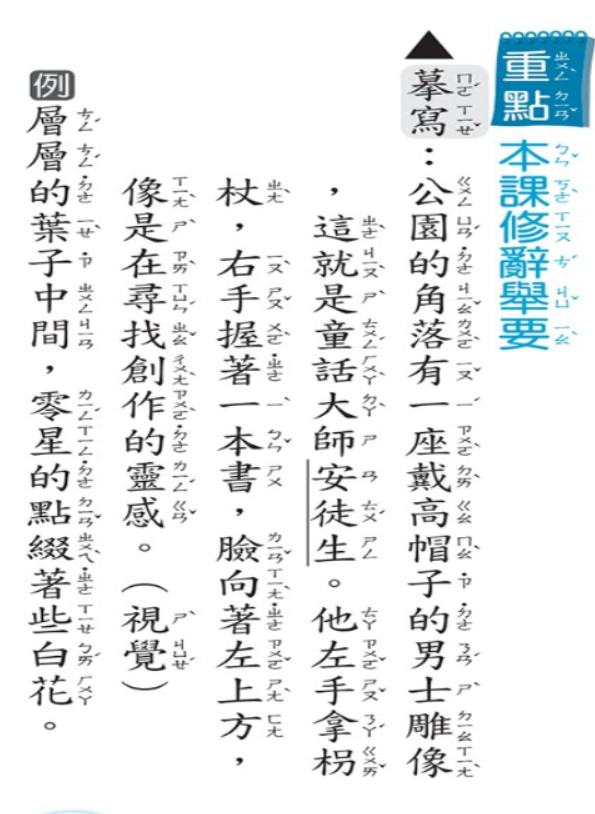 重點
本課修辭舉要
▲摹寫：公園的角落有一座戴高帽子的男士雕像
，這就是童話大師安徒生。他左手拿枴
杖，右手握著一本書，臉向著左上方，
像是在尋找創作的靈感。（視覺）
例
層層的葉子中間，零星的點綴著些白花。